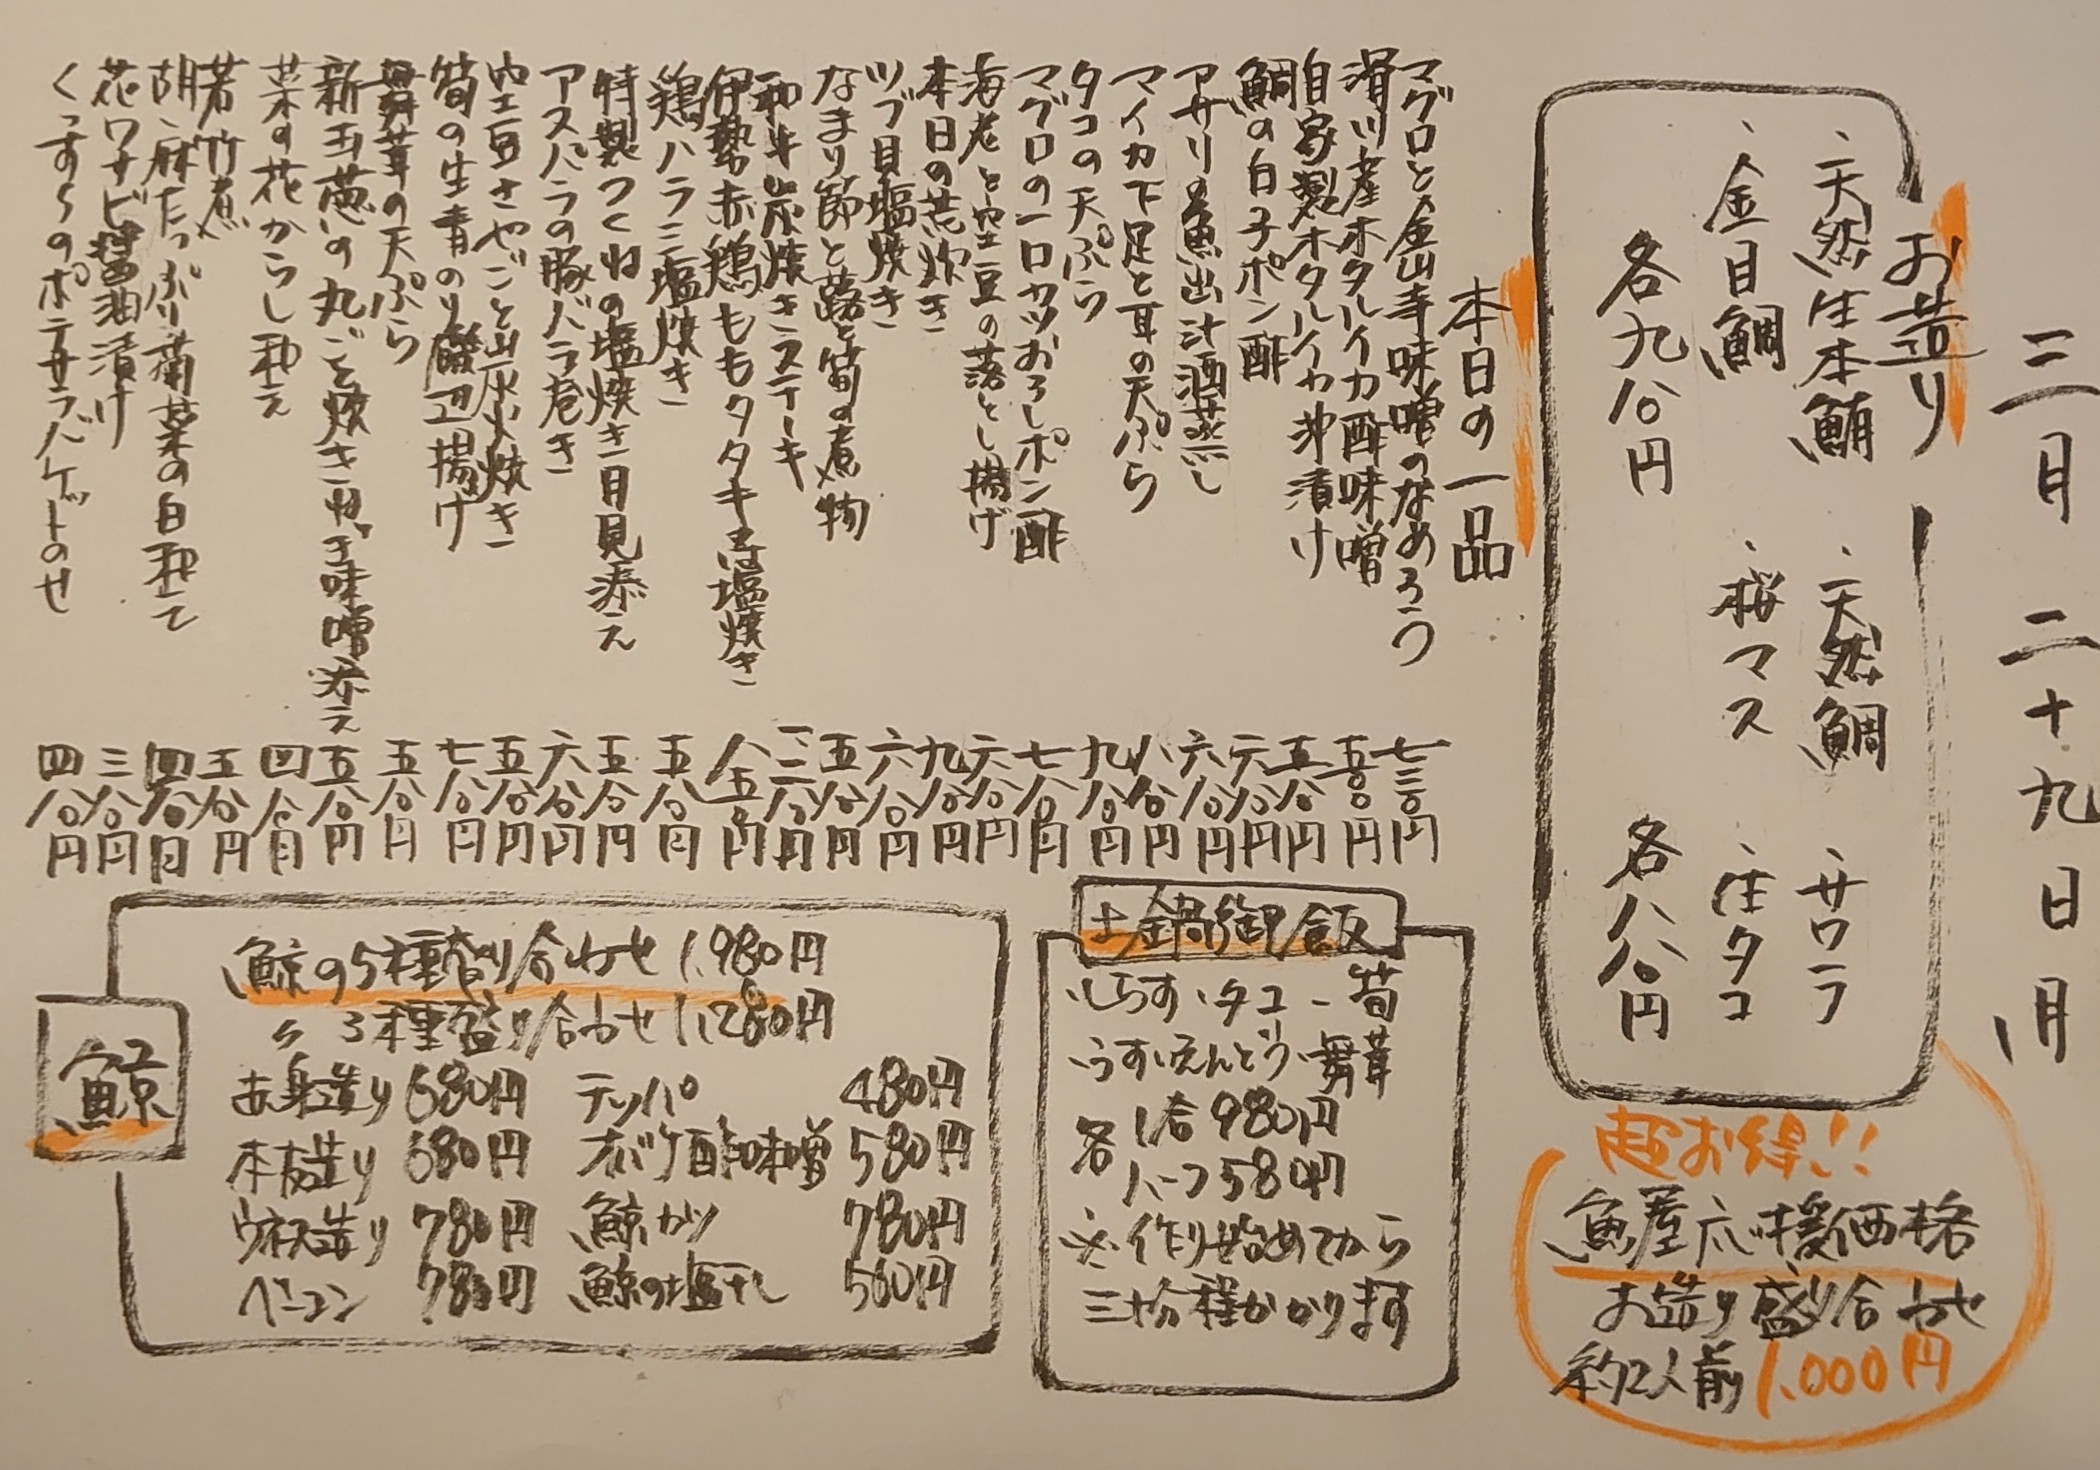 三月二十九日 月
お造り
・天然生本鮪 ・天然鯛 ・サワラ
・金目鯛 ・桜マス ・生タコ
各九八〇円 各八八〇円
超お得!!
魚屋応援価格
お造り盛り合わせ
約2人前 1,000円
本日の一品
マグロと金山寺味噌のなめろう 七三〇円
滑川産ホタルイカ酢味噌 五八〇円
自家製ホタルイカ沖漬け 五八〇円
鯛の白子ポン酢 六八〇円
アサリの魚出汁酒蒸し 六八〇円
マイカ下足と耳の天ぷら 八八〇円
タコの天ぷら 九八〇円
マグロの一口カツおろしポン酢 七八〇円
海老と空豆の落とし揚げ 六八〇円
本日の荒炊き 九八〇円
ツブ貝塩焼き 六八〇円
なまり節と蕗と筍の煮物 五八〇円
和牛炭焼きステーキ
伊勢赤鶏ももタタキ又は塩焼き 八五〇円
鶏ハラミ塩焼き 五八〇円
特製つくねの塩焼き月見添え 五八〇円
アスパラの豚バラ巻き 六八〇円
空豆さやごと炭火焼き 五八〇円
筍の生青のり磯辺揚げ 七八〇円
舞茸の天ぷら 五八〇円
新玉葱の丸ごと焼きねぎ味噌添え 五八〇円
菜の花からし和え 四八〇円
若竹煮 五八〇円
胡麻たっぷり菊菜の白和え 四八〇円
花ワサビ醤油漬け 三八〇円
くっすらのポテサラバケットのせ 四八〇円
土鍋御飯
・しらす ・タコ ・筍
・うすいえんどう ・舞茸
各 1合 980円
ハーフ 580円
※作り始めてから
三十分程かかります
鯨
鯨の5種盛り合わせ 1,980円
〃 3種盛り合わせ 1,280円
赤身造り 680円 テッパ 480円
本皮造り 680円 オバケ酢味噌 580円
ウネス造り 780円 鯨カツ 780円
ベーコン 780円 鯨の塩干し 580円